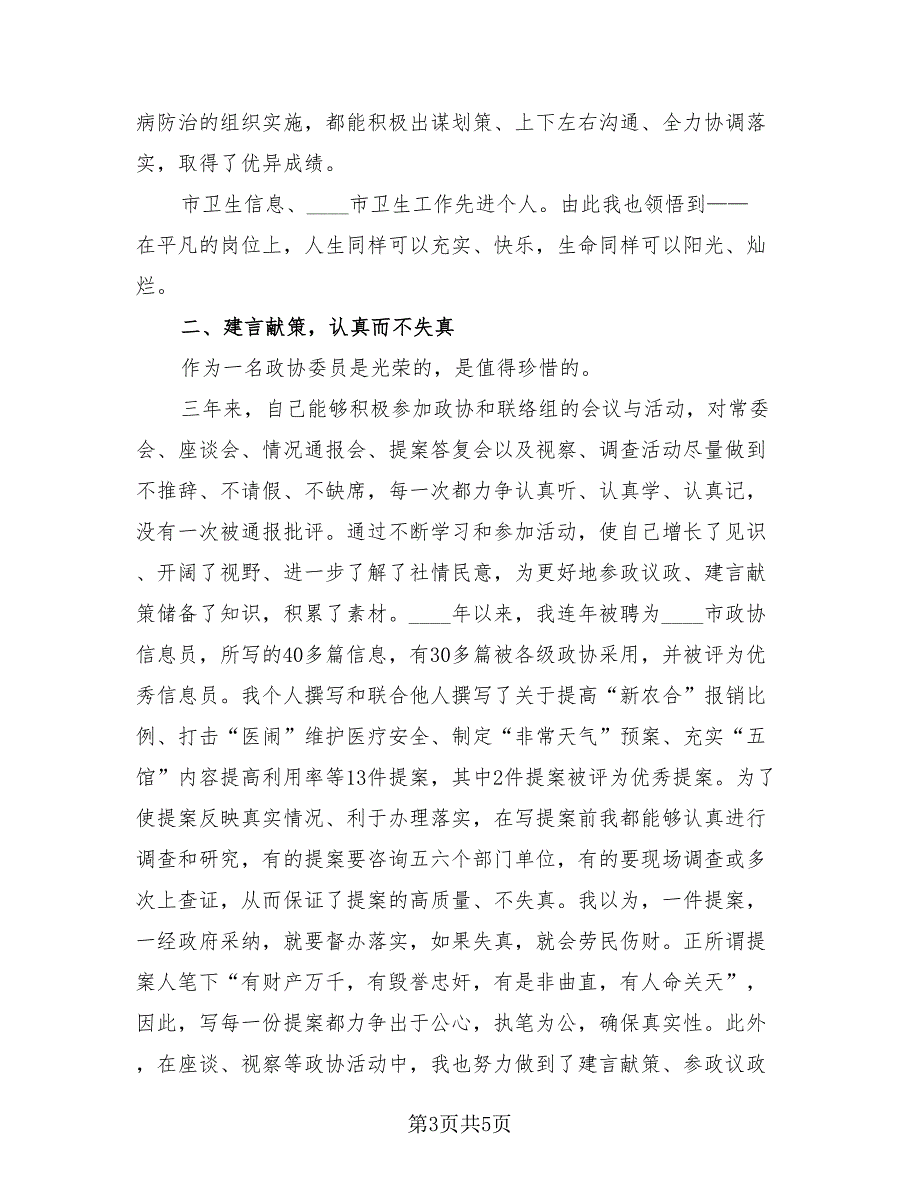 病防治的组织实施，都能积极出谋划策、上下左右沟通、全力协调落
实，取得了优异成绩。
市卫生信息、____市卫生工作先进个人。由此我也领悟到——
在平凡的岗位上，人生同样可以充实、快乐，生命同样可以阳光、灿
烂。
二、建言献策，认真而不失真
作为一名政协委员是光荣的，是值得珍惜的。
三年来，自己能够积极参加政协和联络组的会议与活动，对常委
会、座谈会、情况通报会、提案答复会以及视察、调查活动尽量做到
不推辞、不请假、不缺席，每一次都力争认真听、认真学、认真记，
没有一次被通报批评。通过不断学习和参加活动，使自己增长了见识
、开阔了视野、进一步了解了社情民意，为更好地参政议政、建言献
策储备了知识，积累了素材。____年以来，我连年被聘为____市政协
信息员，所写的40多篇信息，有30多篇被各级政协采用，并被评为优
秀信息员。我个人撰写和联合他人撰写了关于提高“新农合”报销比
例、打击“医闹”维护医疗安全、制定“非常天气”预案、充实“五
馆”内容提高利用率等13件提案，其中2件提案被评为优秀提案。为了
使提案反映真实情况、利于办理落实，在写提案前我都能够认真进行
调查和研究，有的提案要咨询五六个部门单位，有的要现场调查或多
次上查证，从而保证了提案的高质量、不失真。我以为，一件提案，
一经政府采纳，就要督办落实，如果失真，就会劳民伤财。正所谓提
案人笔下“有财产万千，有毁誉忠奸，有是非曲直，有人命关天”，
因此，写每一份提案都力争出于公心，执笔为公，确保真实性。此外
，在座谈、视察等政协活动中，我也努力做到了建言献策、参政议政
第3页共5页